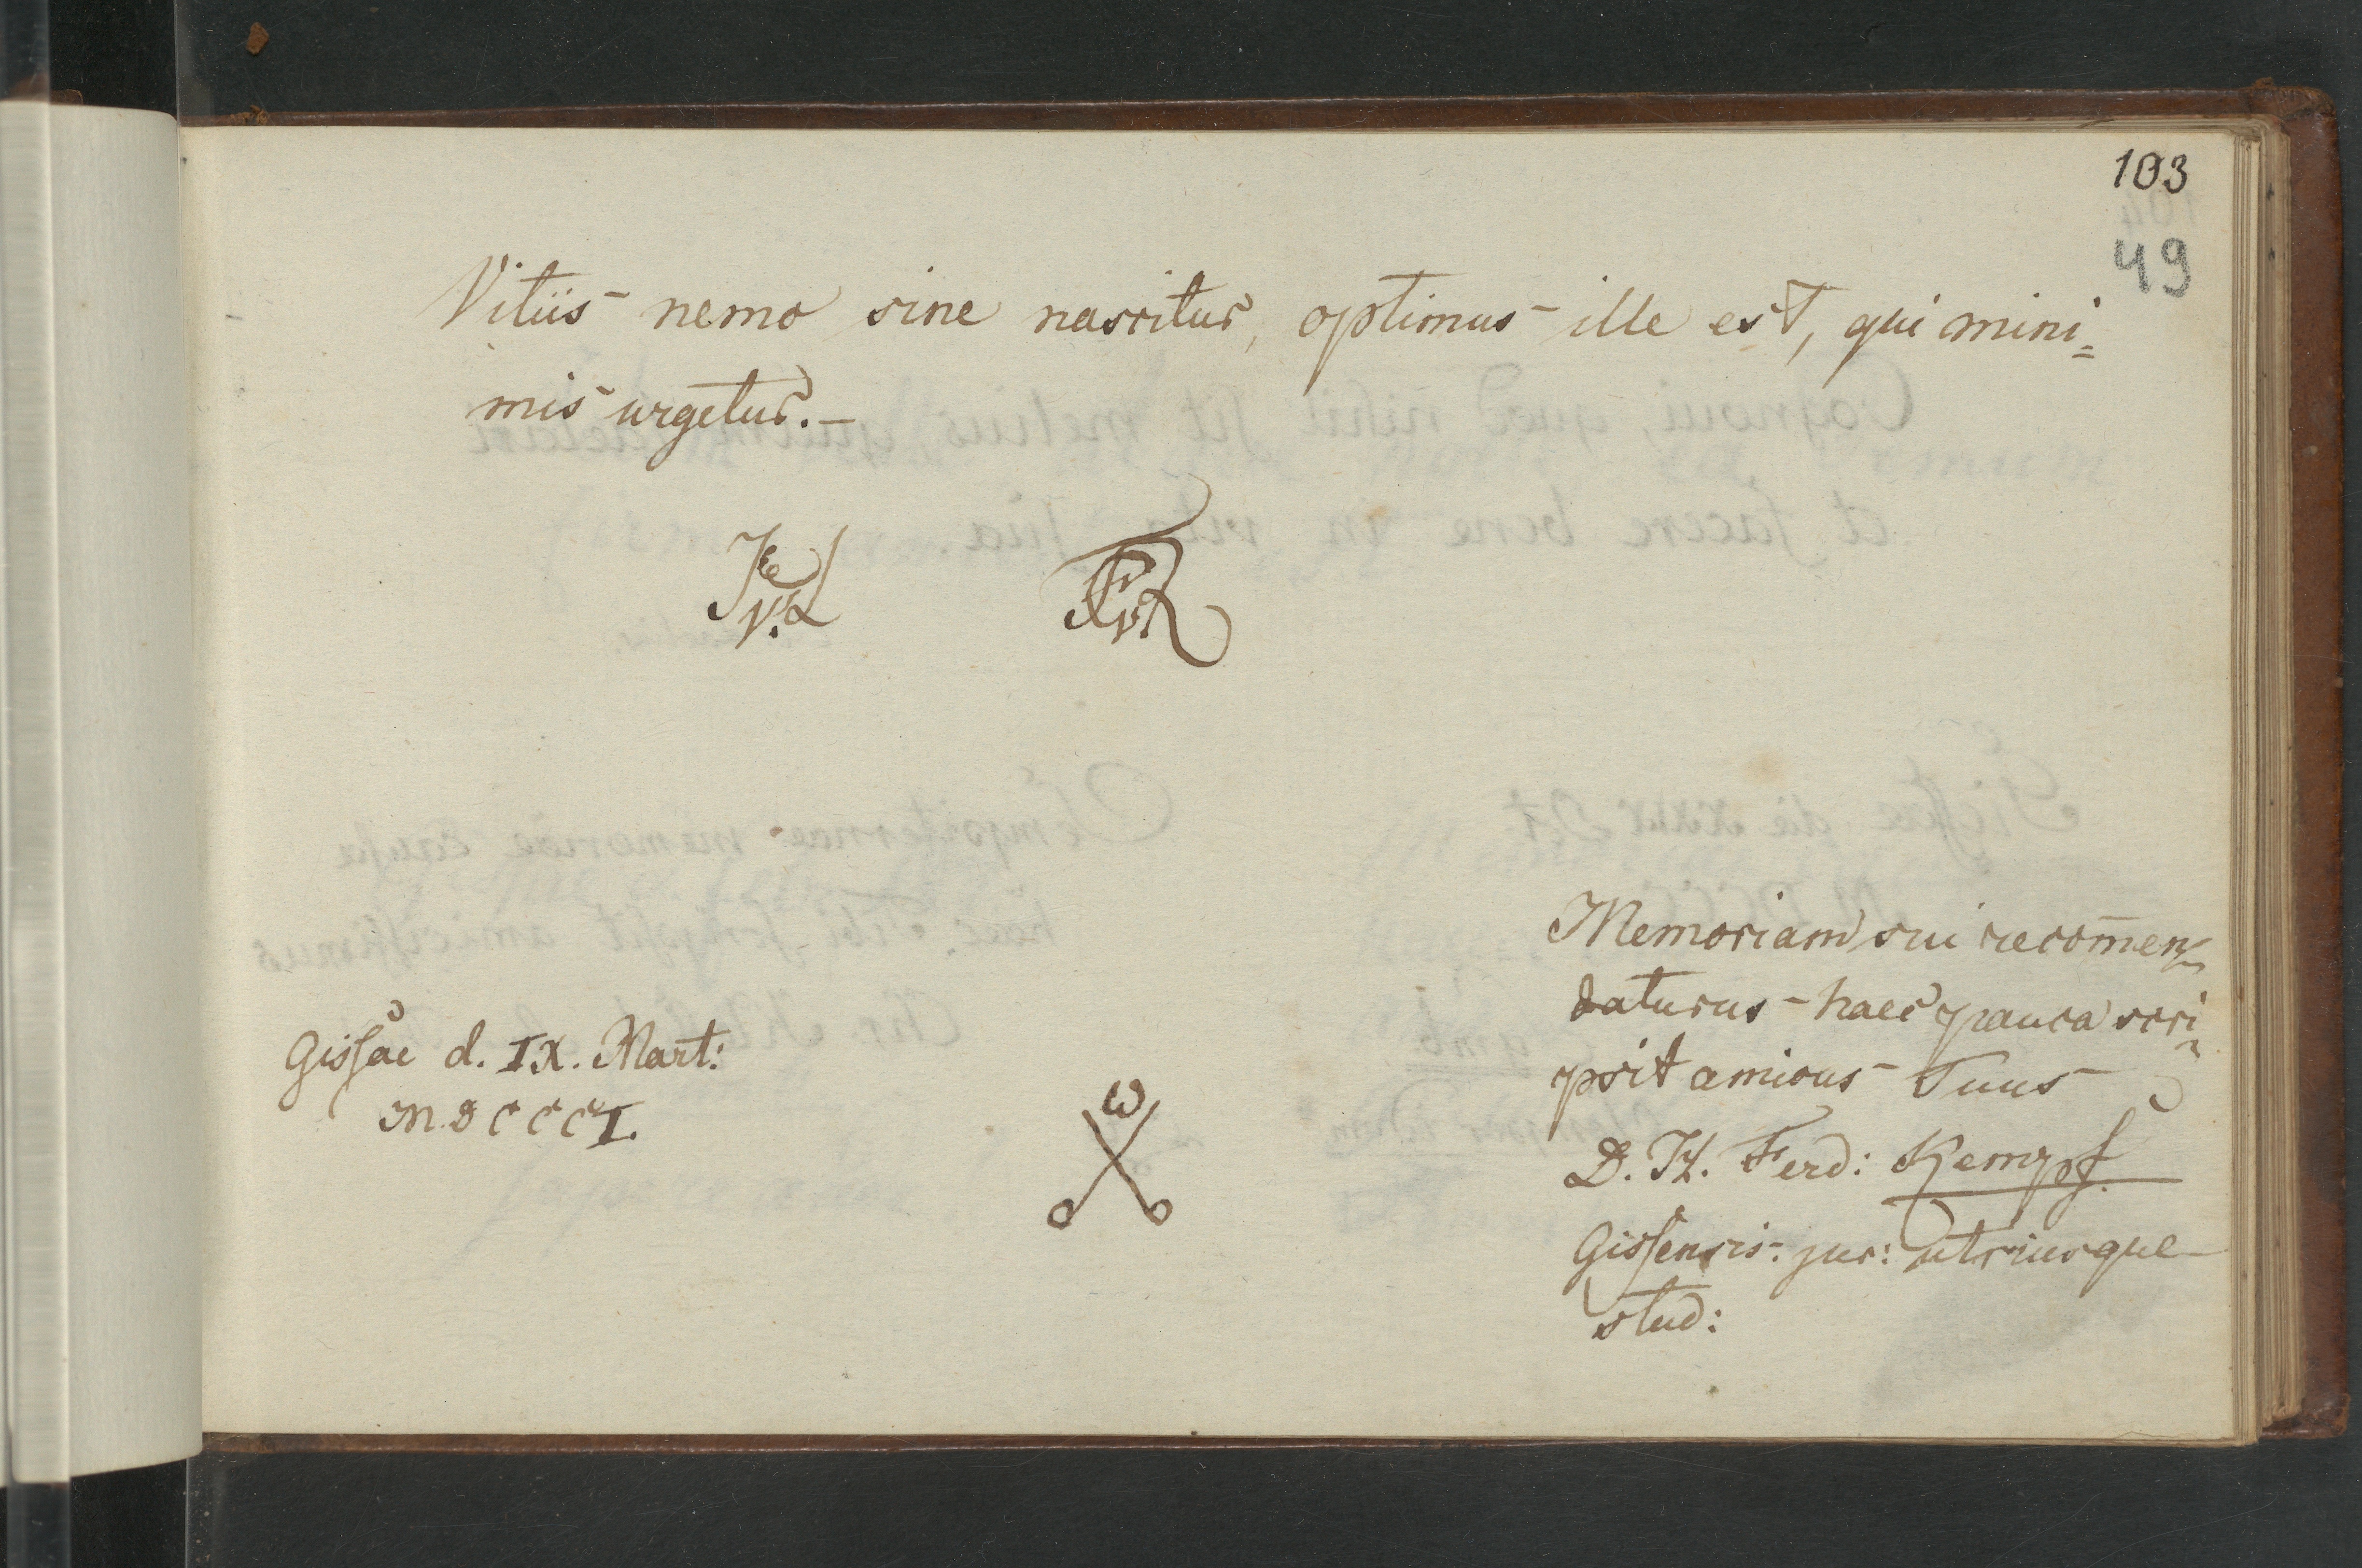 103
49
Vitiis nemo sine nascitur, optimus ille est, qui mini=
mis urgetur. –
Gissae d. IX. Mart:
MDCCCI.
Memoriam sui recom̄en=
daturus haec pauca scri=
psit amicus Tuus
D. H. Ferd: Kempf
Gissensis. jur: utriusque
stud: